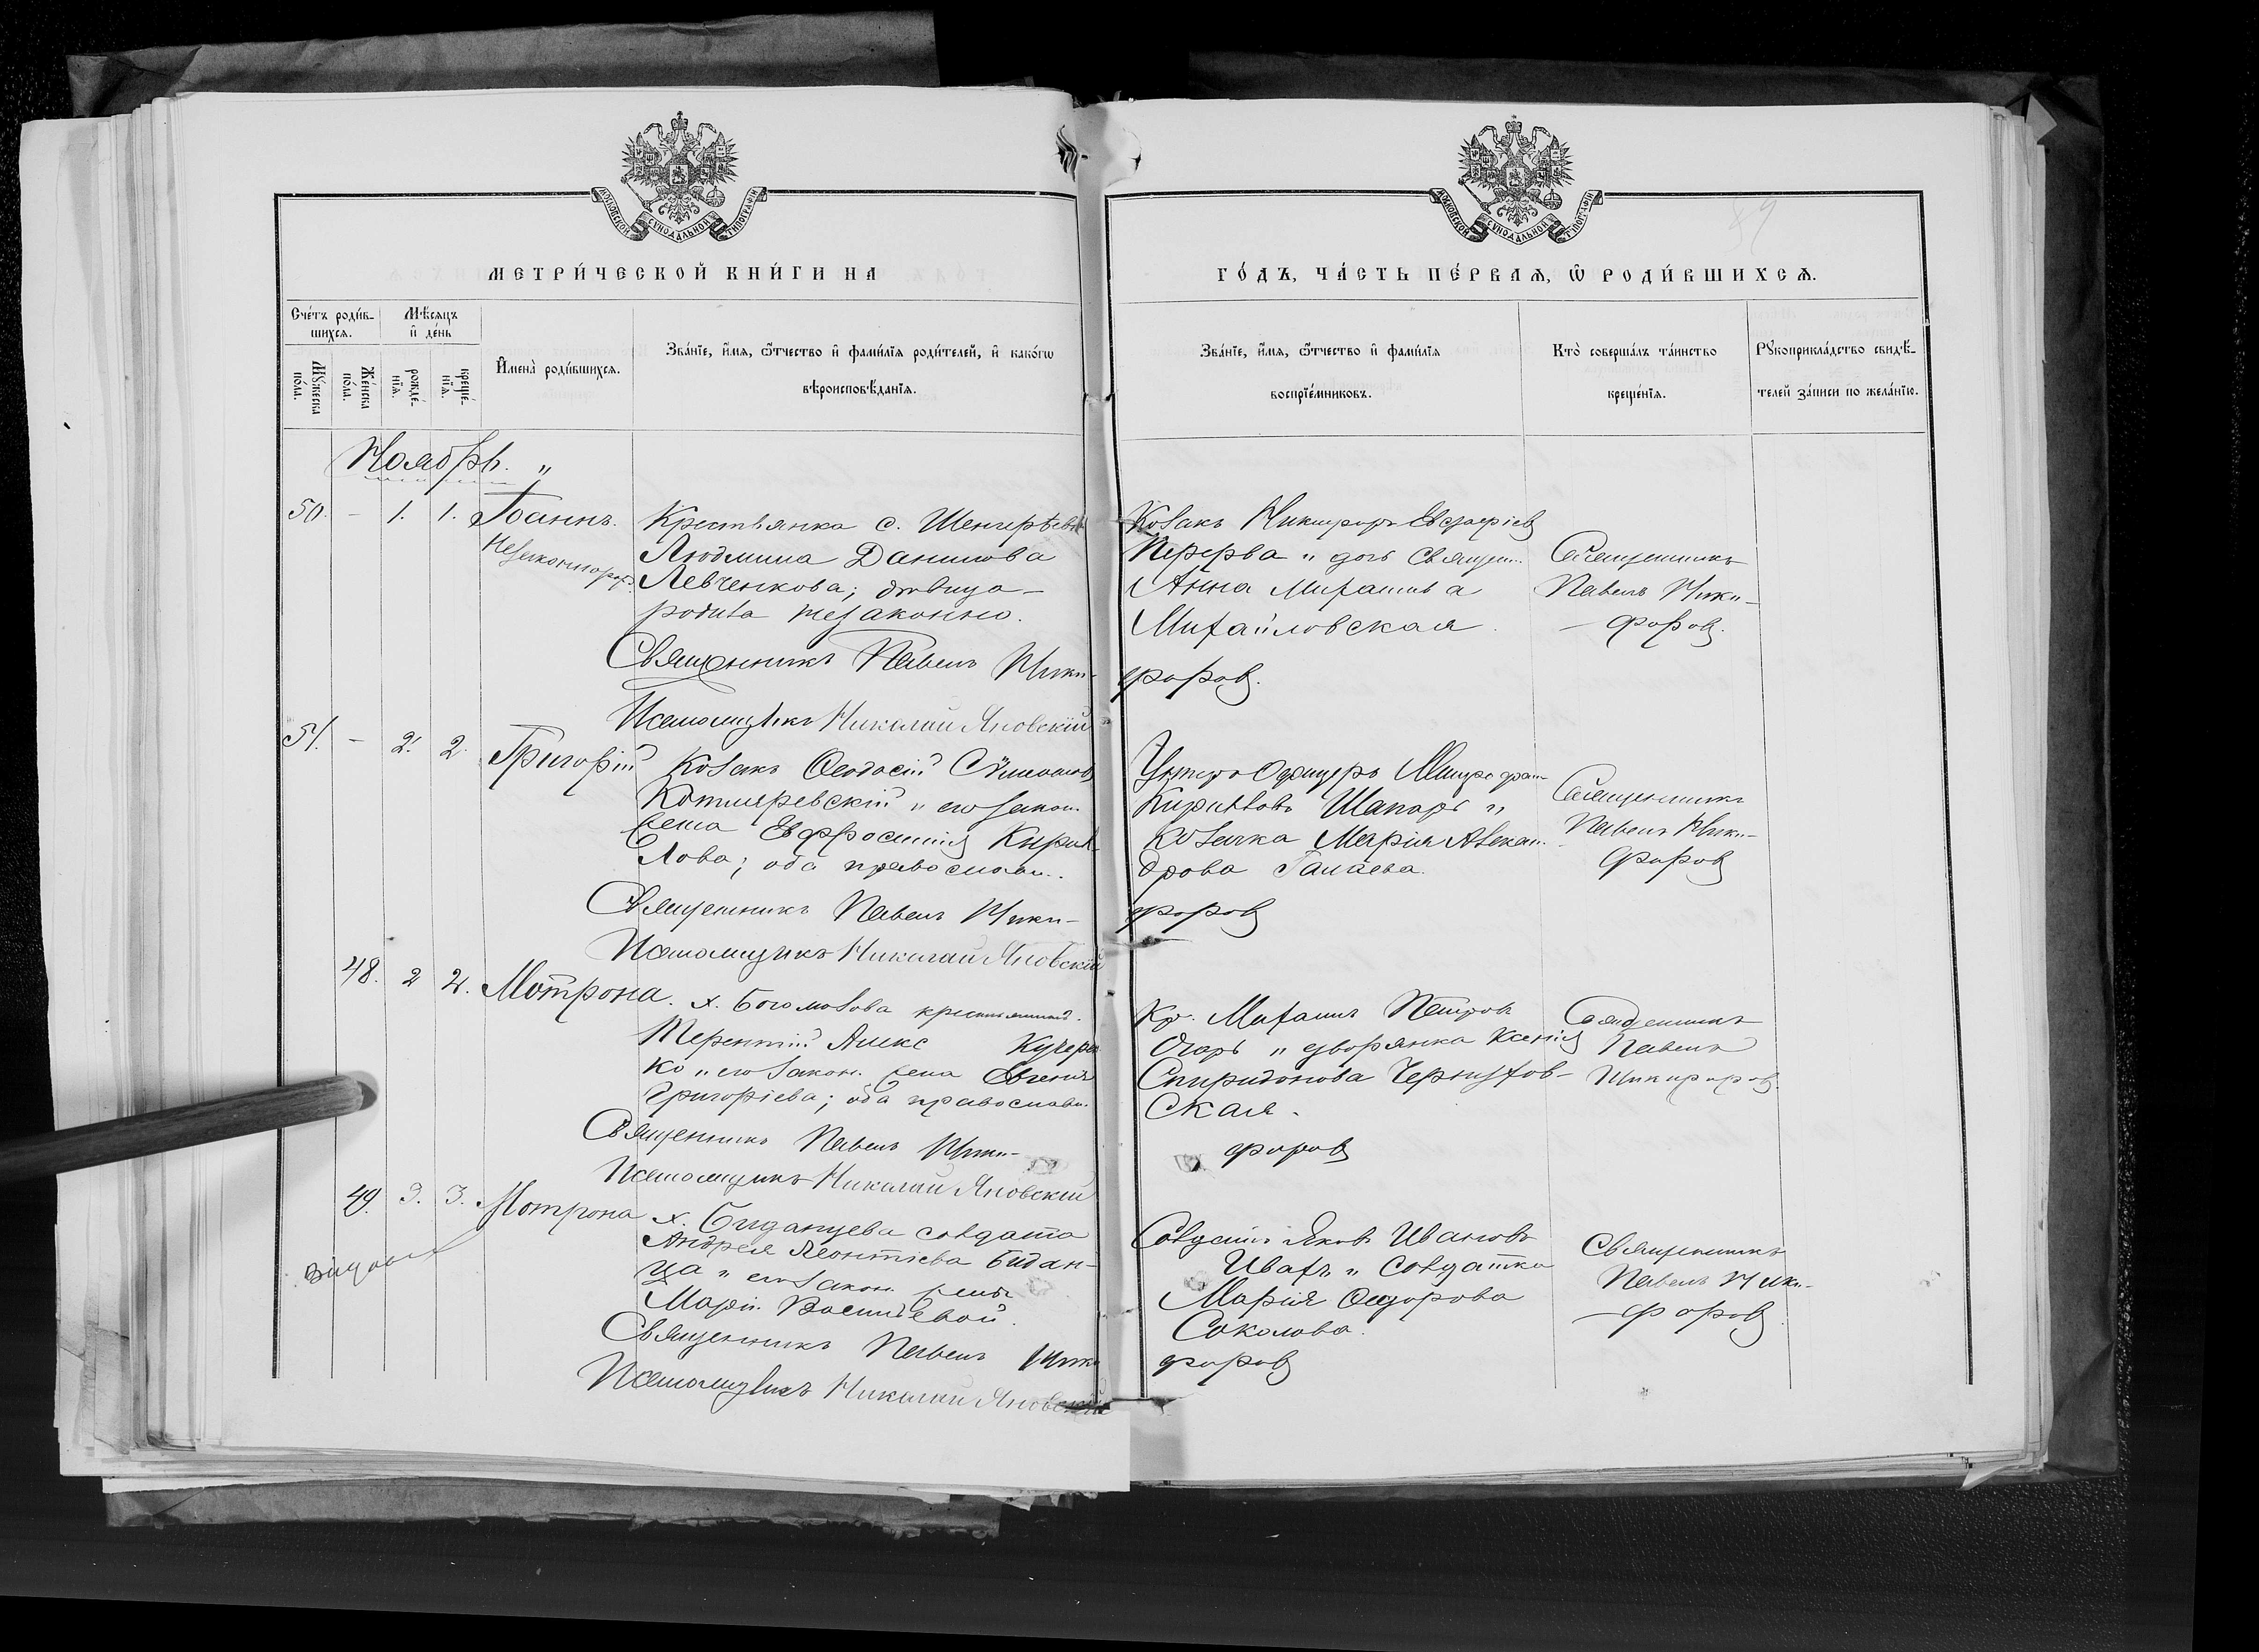 МОСКОВСКОЙ СѴНОДАЛЬНОЙ ТИПОГРАФІИ
МЕТРИ́ЧЕСКОЙ КНИ́ГИ НА
Сче́тъ роди́в-
шихсѧ.
Мѣ́сѧцъ
и҆ де́нь
Мꙋ́жеска
по́ла.
Же́нска
по́ла.
рожде́-
нїѧ.
креще́-
нїѧ.
И҆мена̀ роди́вшихсѧ.
Зва́нїе, и҆́мѧ, ѻ҆́тчество и҆ фами́лїѧ роди́телей, и҆ како́гѡ
вѣроисповѣ́данїѧ.
Ноябрь. „
50. – 1. 1. Іоаннъ.
Крестьянка с.
Людмила Данилова
Левченкова; дѣвица –
родила незаконно.
Священникъ Павелъ Ники-
Псаломщикъ Николай Яновскій
51. – 2. 2. Григорій
Козакъ Ѳеодосій
Котляревскій „ его закон.
жена Евфросинія Кирил-
лова; оба православн.
Священникъ Павелъ Ники-
Псаломщикъ Николай Яновскій
48. 2 2. Мотрона.
х. Богомолова крестьянинъ
Терентій Алекс Кучерен
ко „ его закон. жена Евгенія
Григоріева; оба православн.
Священникъ Павелъ Ники-
Псаломщикъ Николай Яновскій
49. 3. 3. Мотрона
х. Биданцева солдата
Андрея Леонтіева Бидан-
ца „ его закон. жены
Маріи Васильевой.
Священникъ Павелъ Ники
Псаломщикъ Николай Яновскій
МОСКОВСКОЙ СѴНОДАЛЬНОЙ ТИПОГРАФІИ
89
ГО́ДЪ, ЧА́СТЬ ПЕ́РВАѦ, Ѡ҆ РОДИ́ВШИХСѦ.
Зва́нїе, и҆́мѧ, ѻ҆́тчество и҆ фами́лїѧ
воспрїе́мниковъ.
Кто̀ соверша́лъ та́инство
креще́нїѧ.
Рꙋкоприкла́дство свидѣ́-
телей за́писи по жела́нїю.
Козакъ Никифоръ
Перерва „ дочь Священ.
Анна Михаилова
Михайловская.
форовъ.
Священникъ
Павелъ Ники-
форовъ.
Унтеръ Офицеръ
Кириловъ Шапарь „
Козачка Марія Алексан.
дрова Галаева.
форовъ
Священникъ
Павелъ Ники-
форовъ
Кр. Михаилъ Петровъ
Огарь „ дворянка Ксенія
Спиридонова Черняхов-
ская.
форовъ
Священникъ
Павелъ
Никифоровъ.
Солдатъ Яковъ Ивановъ
Ивахъ „ Солдатка
Марія Ѳедорова
Соколова.
форовъ
Священникъ
Павелъ Ники-
форовъ.